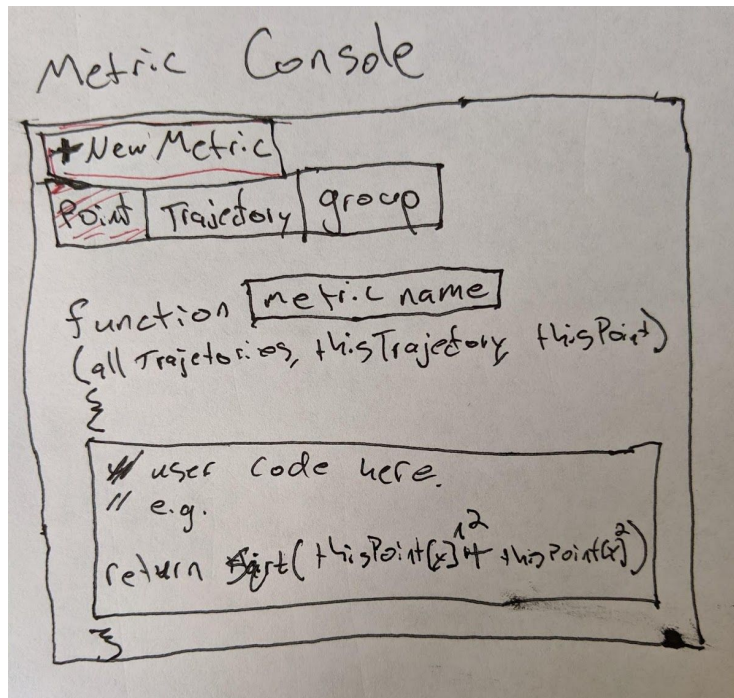 Metric Console
+ New Metric
Point Trajectory group
function metric name
(all Trajetories, thisTrajectory, thisPoint)
{
// user code here.
// e.g.
return sqrt(thisPoint[x]^2 + thisPoint[x]^2)
}